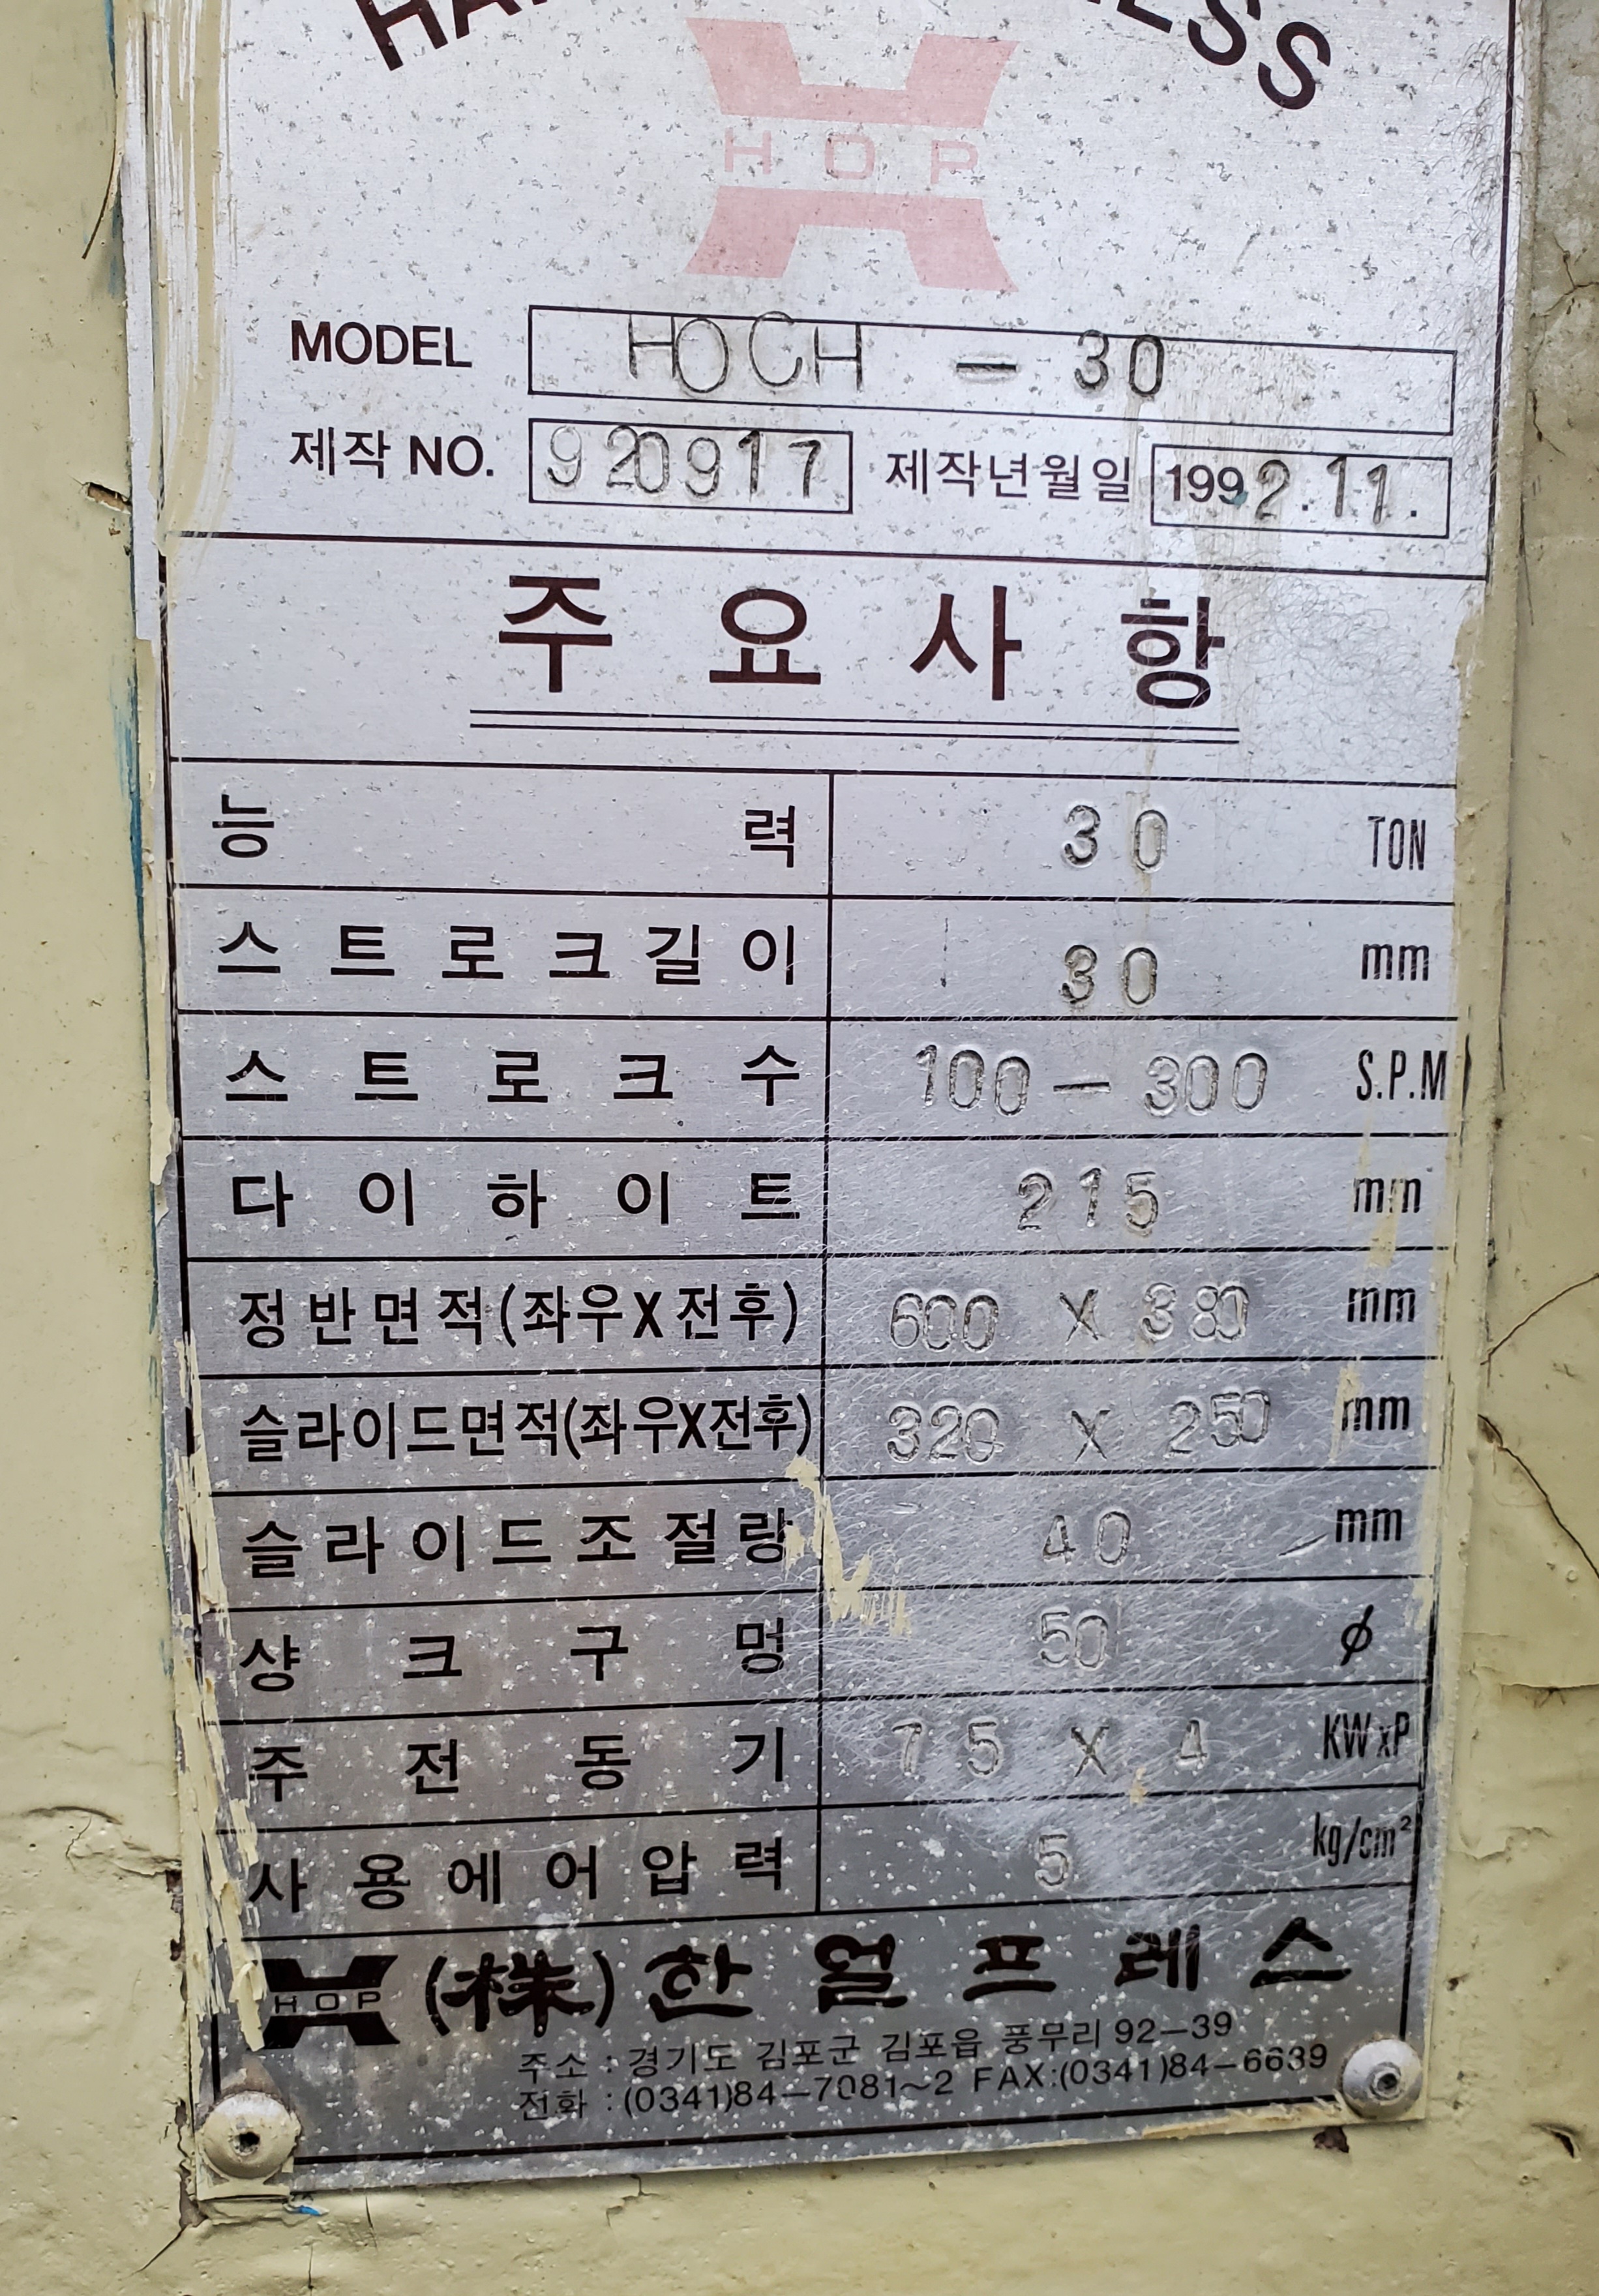 H O P
MODEL HOCH - 30
제작 NO. 920917 제작년월일 1992.11.
주요사항
능력 30 TON
스트로크길이 30 mm
스트로크수 100 - 300 S.P.M
다이하이트 215 mm
정반면적(좌우X전후) 600 X 380 mm
슬라이드면적(좌우X전후) 320 X 250 mm
슬라이드조절량 40 mm
샹크구멍 50 ϕ
주전동기 7 5 X 4 KWxP
사용에어압력 5 kg/cm²
HOP (株)한얼프레스
주소 : 경기도 김포군 김포읍 풍무리 92-39
전화 : (0341)84-7081~2 FAX:(0341)84-6639